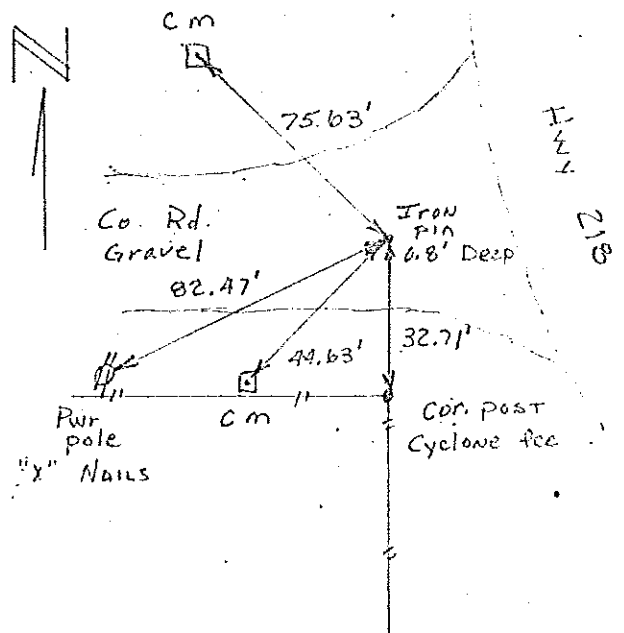 N
C m
75.63'
Hwy 218
Co. Rd.
Gravel
Iron
pin
6.8' Deep
82.47'
44.63'
32.71'
Pwr
pole
"X" NAILS
C m
Cor. post
Cyclone fce